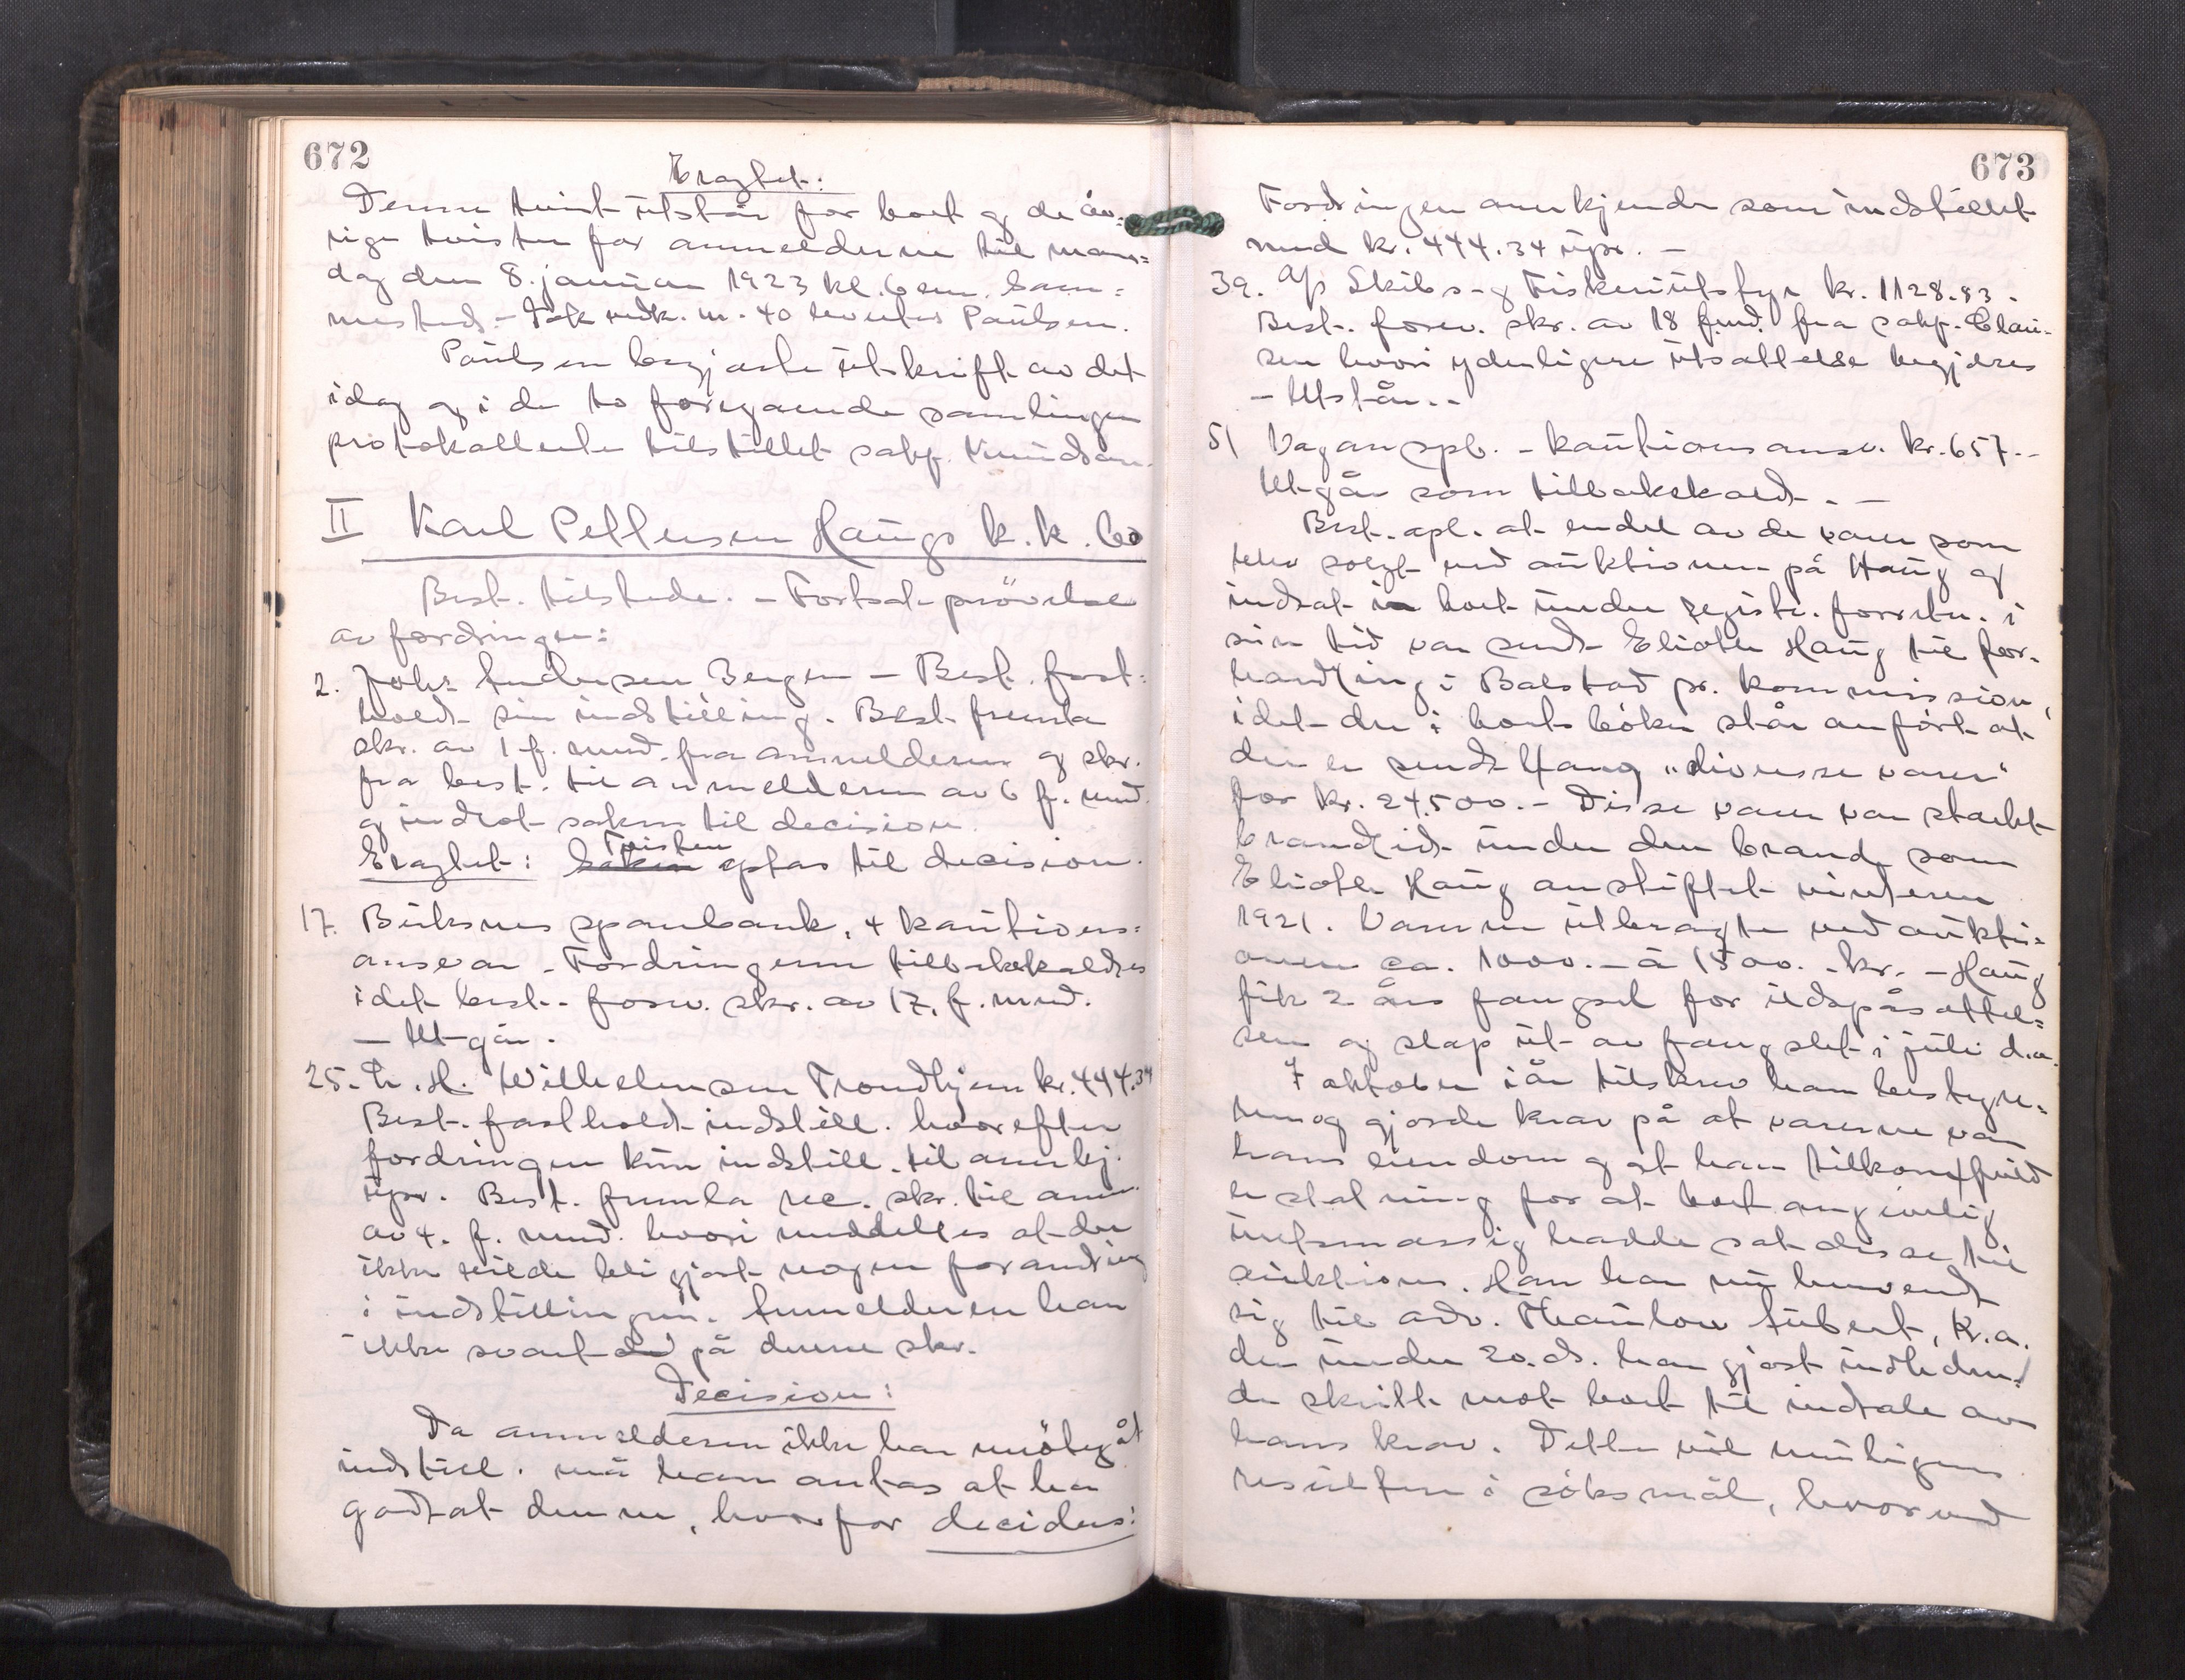 672
Eragtet:
Denne tvist utstår for boet og de öv=
rige tvister for anmelderne til man=
dag den 8. januar 1923 kl. 6 em. Sam=
mesteds. - Dok vedk. nr. 40 leveres Paulsen.
Paulsen begjærte utskrift av det
idag og i de to foregaaende samlinger
protokollerte tilstillet sakf. Knudsen.
II Karl Pettersen Haugs k.k. bo
Best. tilstede. - Fortsat prövelse
av fordringer:
2. Johs Andersen Bergen - Best. fast=
holdt sin indstilling. Best fremla
skr. av 1 f. mnd. fra anmelderen og skr.
fra best. til anmelderen av 6 f. mnd.
og indlot saken til decision.
Tvisten
Eragtet: Saken optas til decision.
17. Buksnes sparebank, 4 kautions=
ansvar - Fordringerne tilbakekaldes
idet best. - forev. skr. av 17. f. mnd.
- Utgår.
25. Th. H. Wilhelmsen Trondhjem kr. 444.34
Best. fastholdt indstill. hvorefter
fordringen kun indstill. til anerkj.
upr. Best. fremla rec. skr. til anm.
av 4. f. mnd. hvori meddeltes at der
ikke vilde bli gjort nogen forandring
i indstillingen. Anmelderen har
ikke svart på denne skr.
Decision:
Da anmelderen ikke har imötegåt
indstill. må han antas at ha
godtat denne, hvorfor decideres:
673
Fordringen anerkjendes som indstillet
med kr. 444.34 upr. -
39. A/s Skibs- og Fiskeriutstyr kr. 1128.83.
Best. forev. skr. av 18 f.md. fra sakf. Clau-
sen hvori yderligere utsættelse begjæres
- Utstår. -
51 Vagan spb. - kautionsansv. kr. 657.-
Utgår som tilbakekaldt. -
Best. opl. at endel av de varer som
blev solgt ved auktionen på Haug og
indsat i boet under registr. forretn. i
sin tid var sendt Eliotte Haug til for-
handling i Balstad pr. kommission,
idet der i boets böker står anfört at
der er sendt Haug "diverse varer"
for kr. 24.500.- Disse varer var stærkt
brandlidt under den brand som
Eliotte Haug anstiftet vinteren
1921. Varerne utbragte ved aukti=
onen ca. 1000.- à 1500.- kr. - Haug
fik 2 års fængsel for ildspåsættel=
sen og slap ut av fængslet i juli d.a.
7 oktober i år tilskrev han bestyre=
ren og gjorde krav på at varerne var
hans eiendom og at han tilkom fuld
erstatning for at boet angivelig
uretmæssig hadde sat disse til
auktion. Han har nu henvendt
sig til adv. Thaulow Aubert, Kr.a.
der under 20. ds. har gjort indleden=
de skritt mot boet til indtale av
hans krav. Dette vil muligens
resultere i söksmål, hvorved